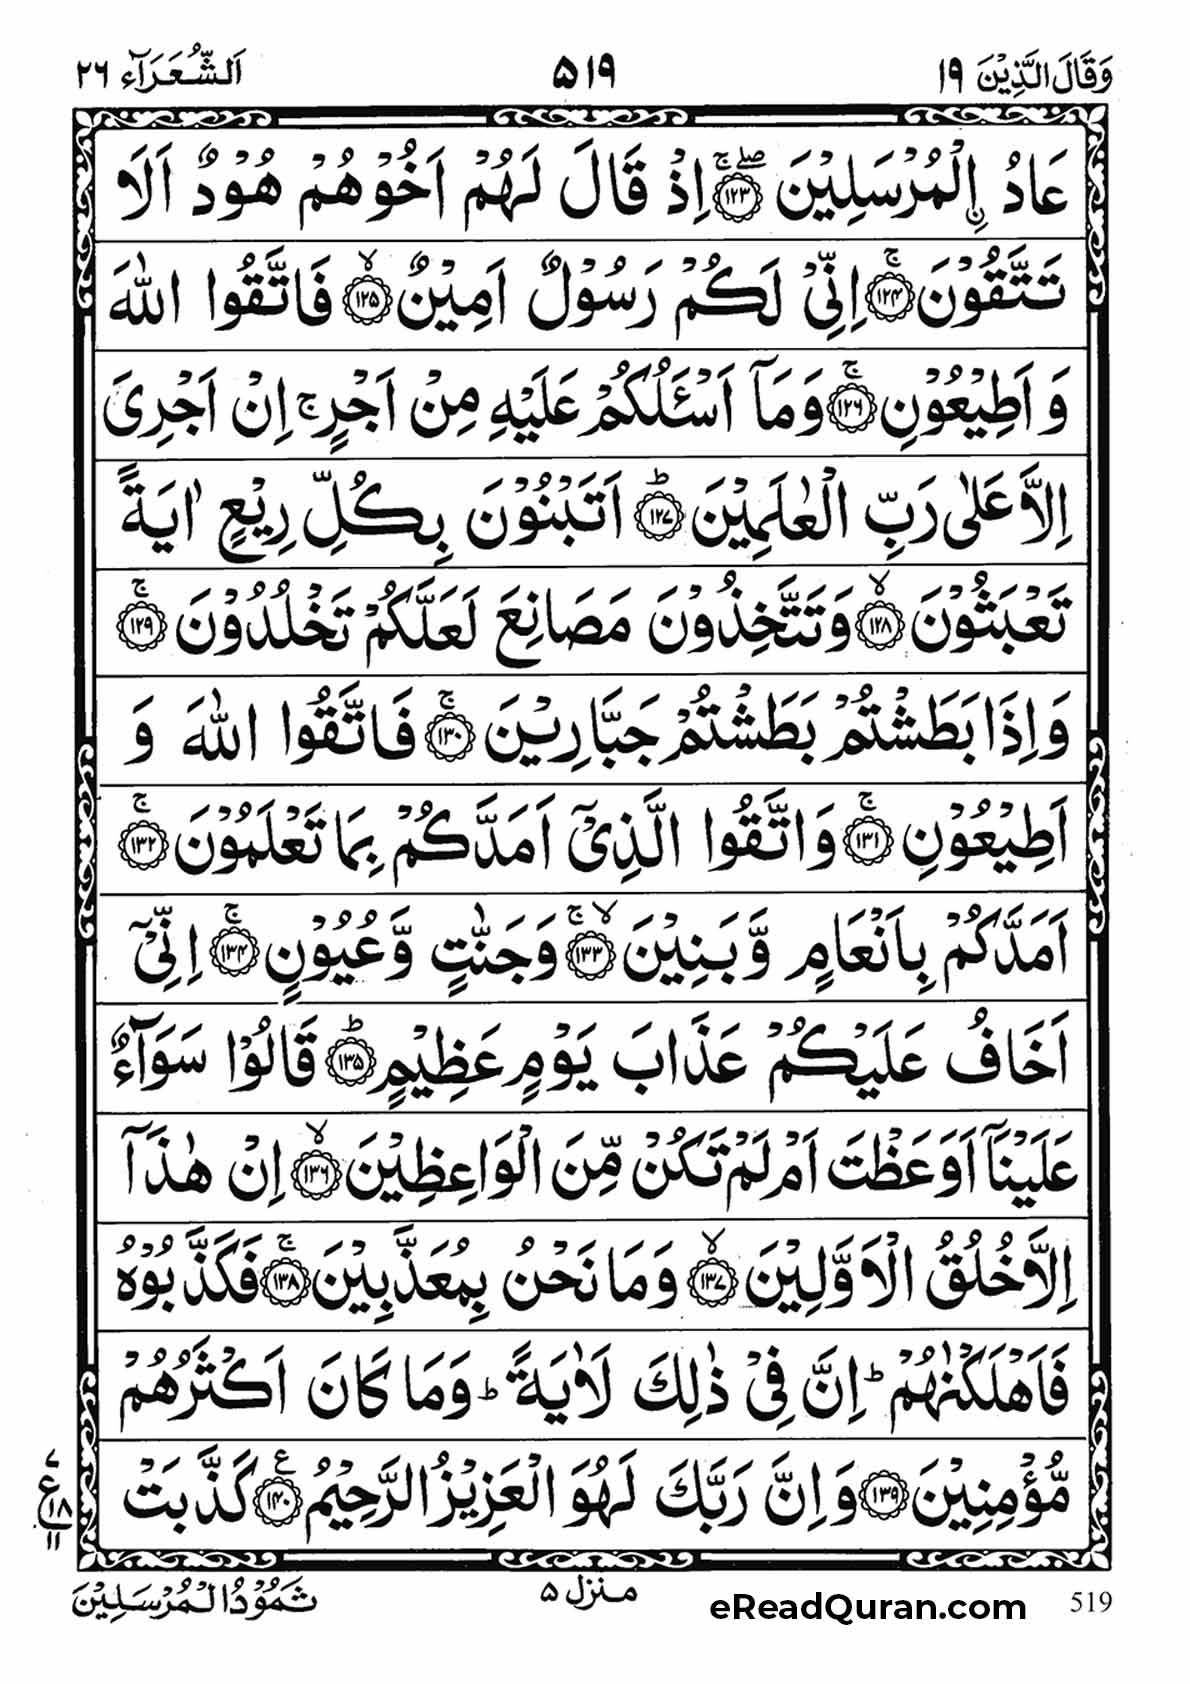 وَقَالَ الَّذِيْنَ ١٩
٥١٩
اَلشُّعَرَآء ٢٦
عَادُ ۨ الْمُرْسَلِيْنَ ۚۖ‏﴿۱۲۳﴾ اِذْ قَالَ لَهُمْ اَخُوْهُمْ هُوْدٌ اَلَا
تَتَّقُوْنَ ۚ‏﴿۱۲۴﴾ اِنِّىْ لَـكُمْ رَسُوْلٌ اَمِيْنٌ ۙ‏﴿۱۲۵﴾ فَاتَّقُوا اللّٰهَ
وَ اَطِيْعُوْنِ‌ ۚ‏﴿۱۲۶﴾ وَمَاۤ اَسْــَٔلُكُمْ عَلَيْهِ مِنْ اَجْرٍ‌ۚ اِنْ اَجْرِىَ
اِلَّا عَلٰى رَبِّ الْعٰلَمِيْنَ ؕ‏﴿۱۲۷﴾ اَتَبْنُوْنَ بِكُلِّ رِيْعٍ اٰيَةً
تَعْبَثُوْنَ ۙ‏﴿۱۲۸﴾ وَتَتَّخِذُوْنَ مَصَانِعَ لَعَلَّكُمْ تَخْلُدُوْنَ‌ ۚ‏﴿۱۲۹﴾
وَاِذَا بَطَشْتُمْ بَطَشْتُمْ جَبَّارِيْنَ‌ ۚ‏﴿۱۳۰﴾ فَاتَّقُوا اللّٰهَ وَ
اَطِيْعُوْنِ‌ ۚ‏﴿۱۳۱﴾ وَاتَّقُوا الَّذِىْۤ اَمَدَّكُمْ بِمَا تَعْلَمُوْنَ‌ ۚ‏﴿۱۳۲﴾
اَمَدَّكُمْ بِاَنْعَامٍ وَّبَنِيْنَ ۙ ۚ‏﴿۱۳۳﴾ وَجَنّٰتٍ وَّعُيُوْنٍ‌ ۚ‏﴿۱۳۴﴾ اِنِّىْۤ
اَخَافُ عَلَيْكُمْ عَذَابَ يَوْمٍ عَظِيْمٍ ؕ‏﴿۱۳۵﴾ قَالُوْا سَوَآءٌ
عَلَيْنَاۤ اَوَعَظْتَ اَمْ لَمْ تَكُنْ مِّنَ الْوَاعِظِيْنَ ۙ‏﴿۱۳۶﴾ اِنْ هٰذَاۤ
اِلَّا خُلُقُ الْاَوَّلِيْنَ ۙ‏﴿۱۳۷﴾ وَمَا نَحْنُ بِمُعَذَّبِيْنَ‌ ۚ‏﴿۱۳۸﴾ فَكَذَّبُوْهُ
فَاَهْلَكْنٰهُمْ‌ؕ اِنَّ فِىْ ذٰ لِكَ لَاٰيَةً‌ ؕ وَمَا كَانَ اَكْثَرُهُمْ
مُّؤْمِنِيْنَ‏﴿۱۳۹﴾ وَاِنَّ رَبَّكَ لَهُوَ الْعَزِيْزُ الرَّحِيْمُ ۧ‏﴿۱۴۰﴾ كَذَّبَتْ
٧
ع
١٨
١١
ثَمُوْدُ الْمُرْسَلِيْنَ
منزل ٥
eReadQuran.com
519